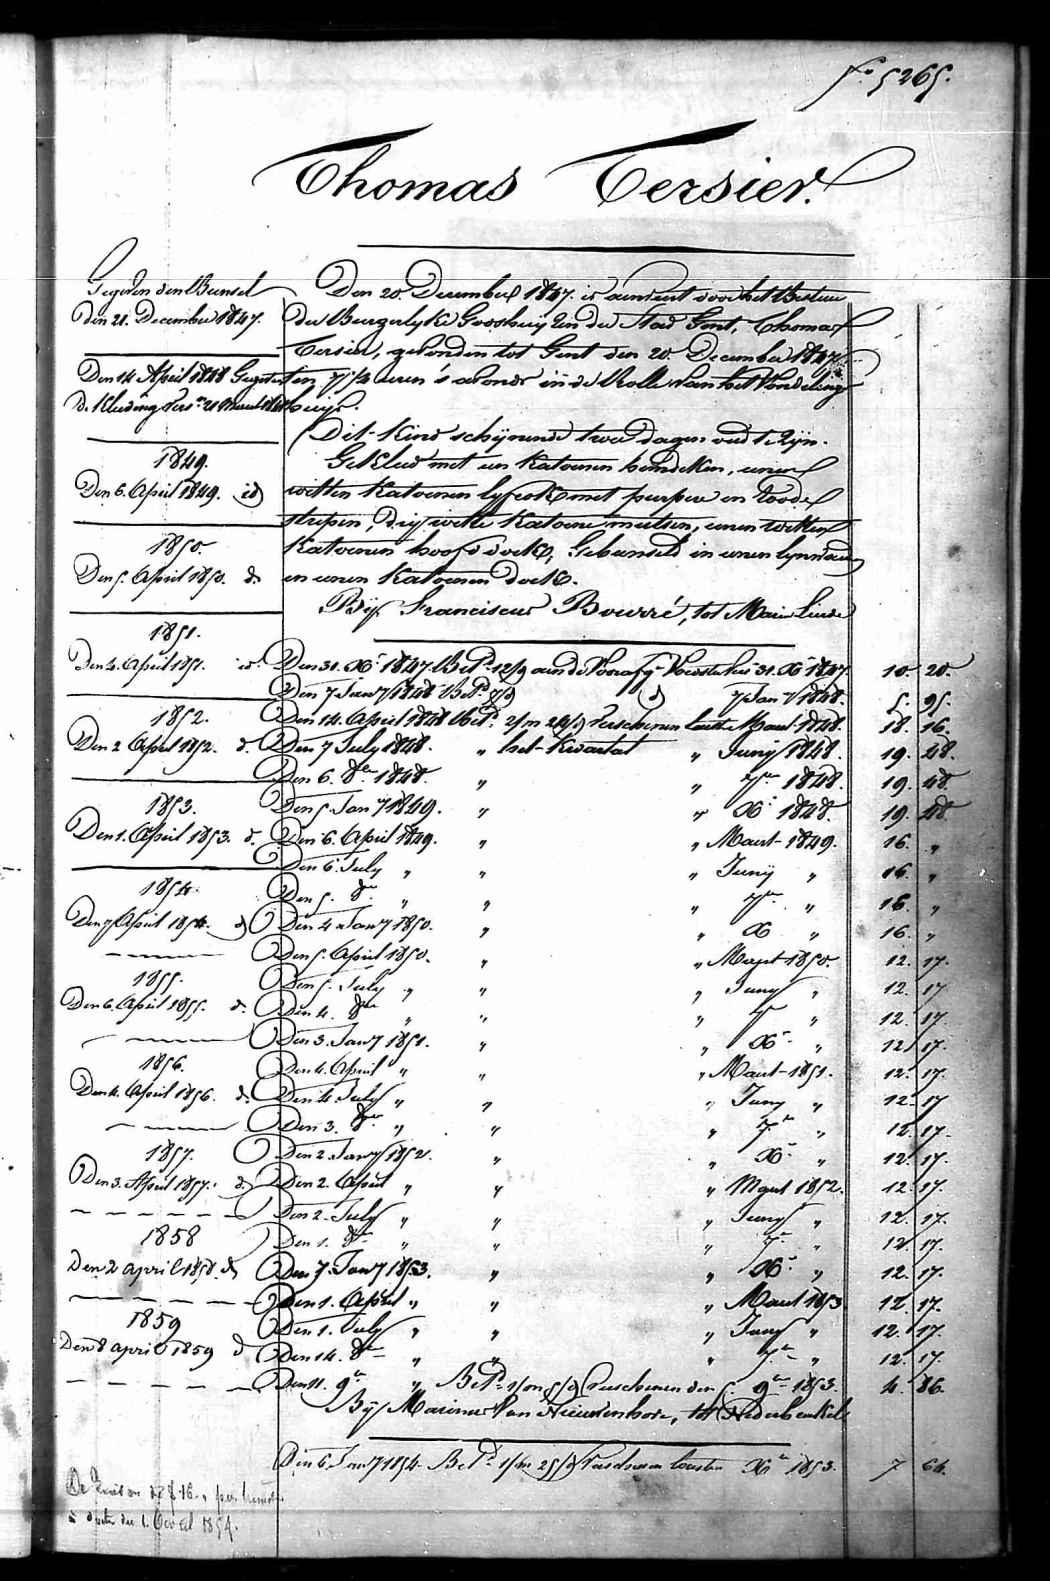 fo 5265.
Thomas Tersier.
Gegeven den Bunsel
den 21. December 1847.
Den 14 April 1848
de Kleeding
1849.
Den 6. April 1849. id
1850.
Den 5. April 1850. d
1851.
Den 4. April 1851. id.
1852.
Den 2 April 1852. d.
1853.
Den 1. April 1853. d.
1854.
Den 7 April 1854. d
1855.
Den 6. April 1855. d.
1856.
Den 4. April 1856. d.
1857.
Den 3. April 1857. d.
1858
Den 2 april 1858. d
1859
Den 8 april 1859 d
Den 20. December 1847. is aenveert door het Bestuer
der Burgerlyke Godshuyzen der Stad Gent, Thomas
Tersier, gevonden tot Gent den 20. December 1847,
ten 7 1/4 uren 's avonds in de Rolle van het Vondeling
huys.
Dit Kind schynende twee dagen oud te zyn.
Gekleed met een Katoenen hemdeken, eenen
witten Katoenen lyfrok met purpere en roode
strepen, dry witte Katoene mutsen, eenen witten
Katoenen hoofddoek, Gebunseld in eenen lynwaed
en eenen Katoenen doek.
By Franciscus Bourré, tot
Den 31. Xb 1847 Bet.d 12/9 aen de 31. Xb 1847. 10. 20.
Den 7 Janry 1848 Bet.d d 7 Jan ry 1848. 5. 95.
Den 14. April 1848 Bet.d 2/m Verschenen Maert 1848. 18. 16.
Den 7 July 1848. " het Kwartael " Juny 1848. 19. 48.
Den 6. 8er 1848. " " 7er 1848. 19. 48
Den 5. Janry 1849. " " Xb 1848. 19. 48
Den 6. April 1849. " " Maert 1849. 16. "
Den 6 July " " " Juny " 16. "
Den 5. 8er " " " 7er " 16. "
Den 4 Janry 1850. " " Xb " 16. "
Den 5. April 1850. " " Maert 1850. 12. 17.
Den 5. July " " " Juny " 12. 17
Den 4. 8er " " " 7er " 12. 17.
Den 3. Janry 1851. " " Xb " 12. 17.
Den 4. April " " " Maert 1851. 12. 17.
Den 4 July " " " Juny " 12. 17
Den 3. 8er " " " 7er " 12. 17.
Den 2 Janry 1852. " " Xb " 12. 17.
Den 2. April " " " Maert 1852. 12. 17.
Den 2. July " " " Juny " 12. 17.
Den 1. 8er " " " 7er " 12. 17.
Den 7 Janry 1853. " " Xb " 12. 17.
Den 1. April " " " Maert 1853 12. 17.
Den 1. July " " " Juny " 12. 17.
Den 14. 8er " " " 7er " 12. 17.
Den 11. 9er " Bet.d 1/m 5/d Verschenen den 5. 9er 1853. 4. 86.
By Marinus Van Nieuwenhove, tot Nederbrakel
Den 6 Janry 1854. Bet.d 1/m 25/d Verschenen Xb 1853. 7 64.
1854.